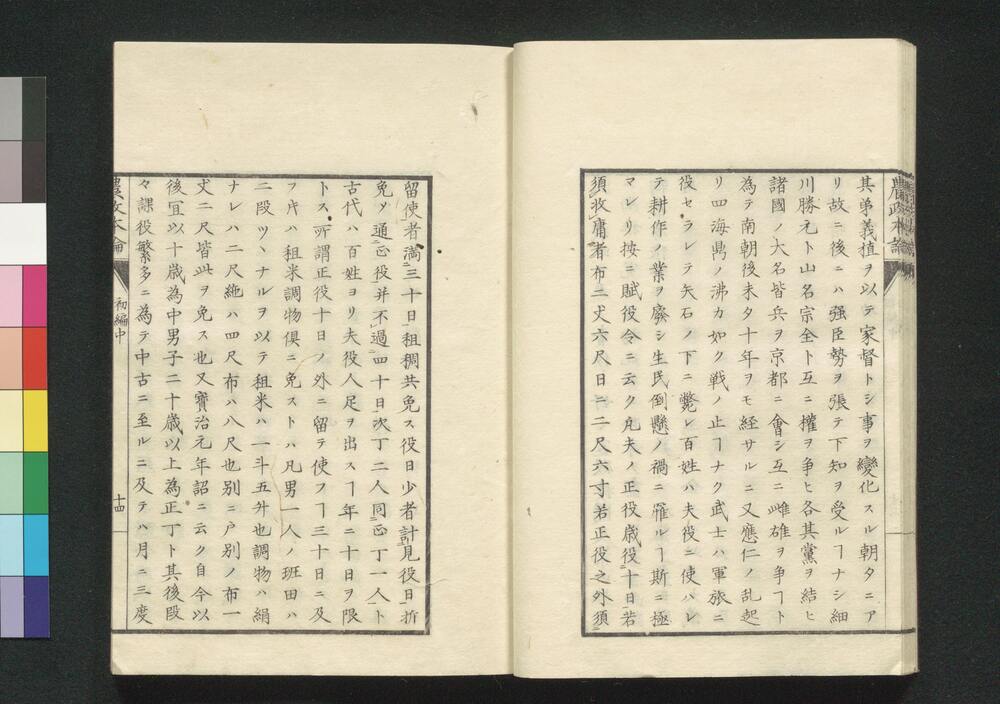 其弟義植ヲ以テ家督トシ事ヲ變化スル朝タニア
リ故ニ後ニハ强臣勢ヲ張テ下知ヲ受ルヿナシ細
川勝元ト山名宗全ト互ニ權ヲ争ヒ各其黨ヲ結ヒ
諸國ノ大名皆兵ヲ京都ニ會シ互ニ雌雄ヲ争フト
為テ南朝後未タ十年ヲモ経サルニ又應仁ノ乱起
リ四海鼎ノ沸カ如ク戦ノ止ヿナク武士ハ軍旅ニ
役セラレテ矢石ノ下ニ斃レ百姓ハ夫役ニ使ハレ
テ耕作ノ業ヲ廢シ生民倒懸ノ禍ニ罹ルヿ斯ニ極
マレリ按ニ賦役令ニ云ク凡夫ノ正役歲役十日若
須收庸者布二丈六尺日ニ二尺六寸若正役之外須
農政本論
留使者満三十日租稠共免ス役日少者計見役日折
免ソ通正役并不過四十日次丁二人同正丁一人ト
古代ハ百姓ヨリ夫役人足ヲ出スヿ年ニ十日ヲ限
トス所謂正役十日ノ外ニ留テ使フヿ三十日ニ及
フ片ハ租米調物倶ニ免ストハ凡男一人ノ班田ハ
二段ツヽナルヲ以テ租米ハ一斗五升也調物ハ絹
ナレハ二尺絁ハ四尺布ハ八尺也別ニ戸別ノ布一
丈二尺皆此ヲ免ス也又寶治元年詔ニ云ク自今以
後冝以十歳為中男子二十歳以上為正丁ト其後段
々課役繁多ニ為テ中古ニ至ルニ及テハ月ニ三度
農政本論
初編中
十四